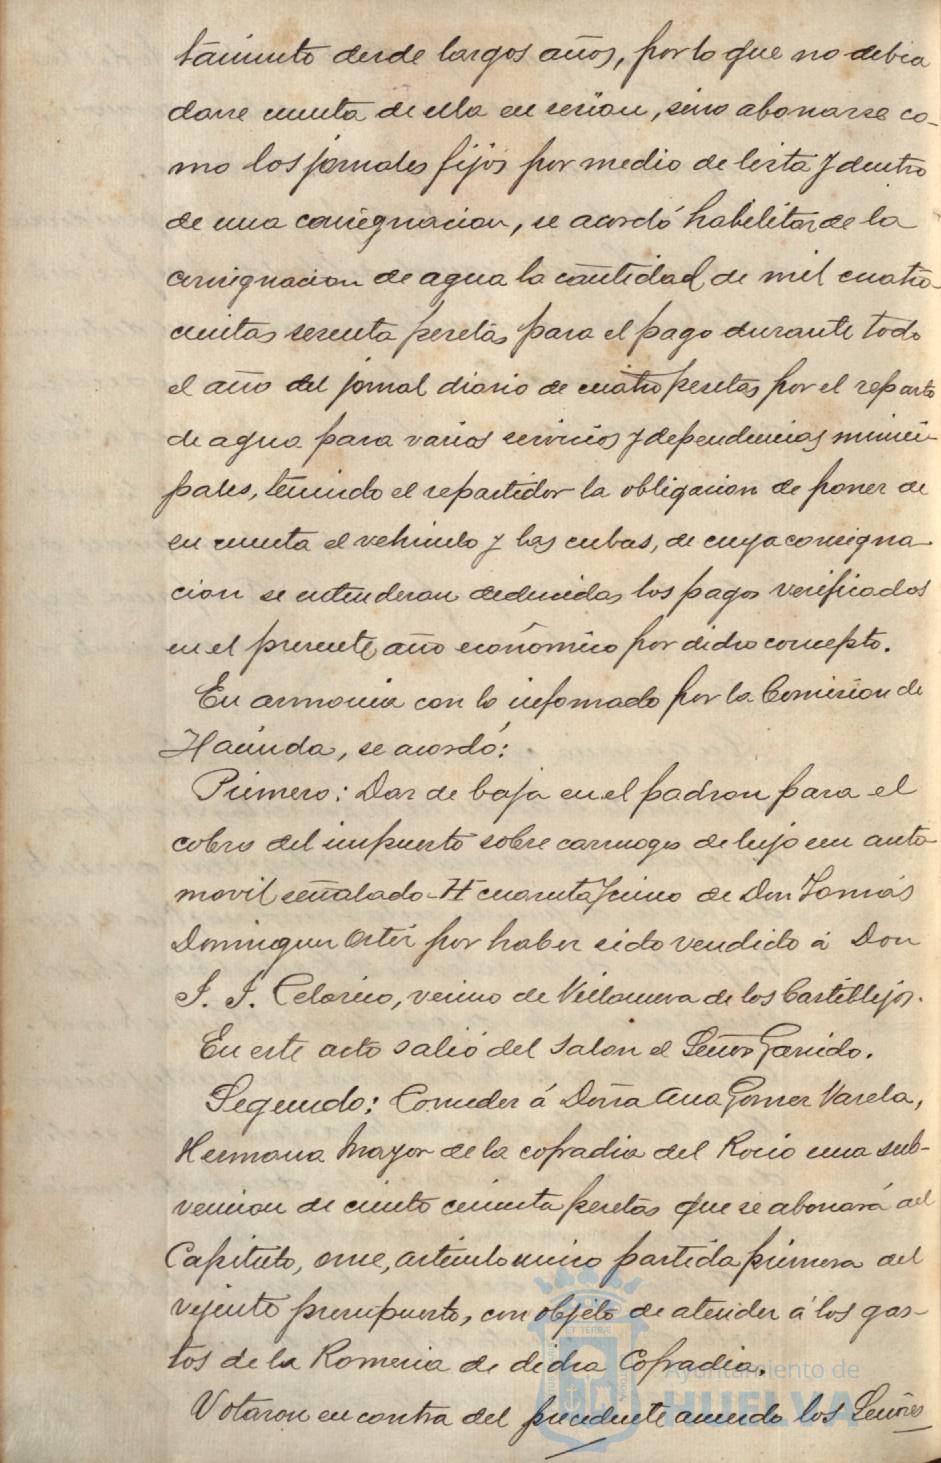 tamiento desde largos años, por lo que no debia
darse cuenta de ella en sesion, sino abonarse co-
mo los jornales fijos por medio de lista y dentro
de una consignacion, se acordó habilitar de la
consignacion de agua la cantidad de mil cuatro-
cientas sesenta pesetas para el pago durante todo
el año del jornal diario de cuatro pesetas por el reparto
de agua para varios servicios y dependencias munici-
pales, teniendo el repartidor la obligacion de poner de
su cuenta el vehiculo y las cubas, de cuya consigna-
cion se entenderan deducidas los pagos verificados
en el presente año económico por dicho concepto.
En armonia con lo informado por la Comision de
Hacienda, se acordó:
Primero: Dar de baja en el padron para el
cobro del impuesto sobre carruages de lujo un auto-
movil señalado H cuarenta y cinco de Don Tomás
Dominguez Ortiz por haber sido vendido á Don
J. J. Celorico, vecino de Villanueva de los Castillejos.
En este acto salió del salon el Señor Garrido.
Segundo: Conceder á Doña Ana Gomez Varela,
Hermana Mayor de la cofradia del Rocio una sub-
vencion de ciento cincuenta pesetas que se abonará del
Capitulo, once, articulo unico partida primera del
vijente presupuesto, con objeto de atender á los gas-
tos de la Romeria de dicha Cofradia.
Votaron en contra del precedente acuerdo los Señores
Ayuntamiento de
HUELVA